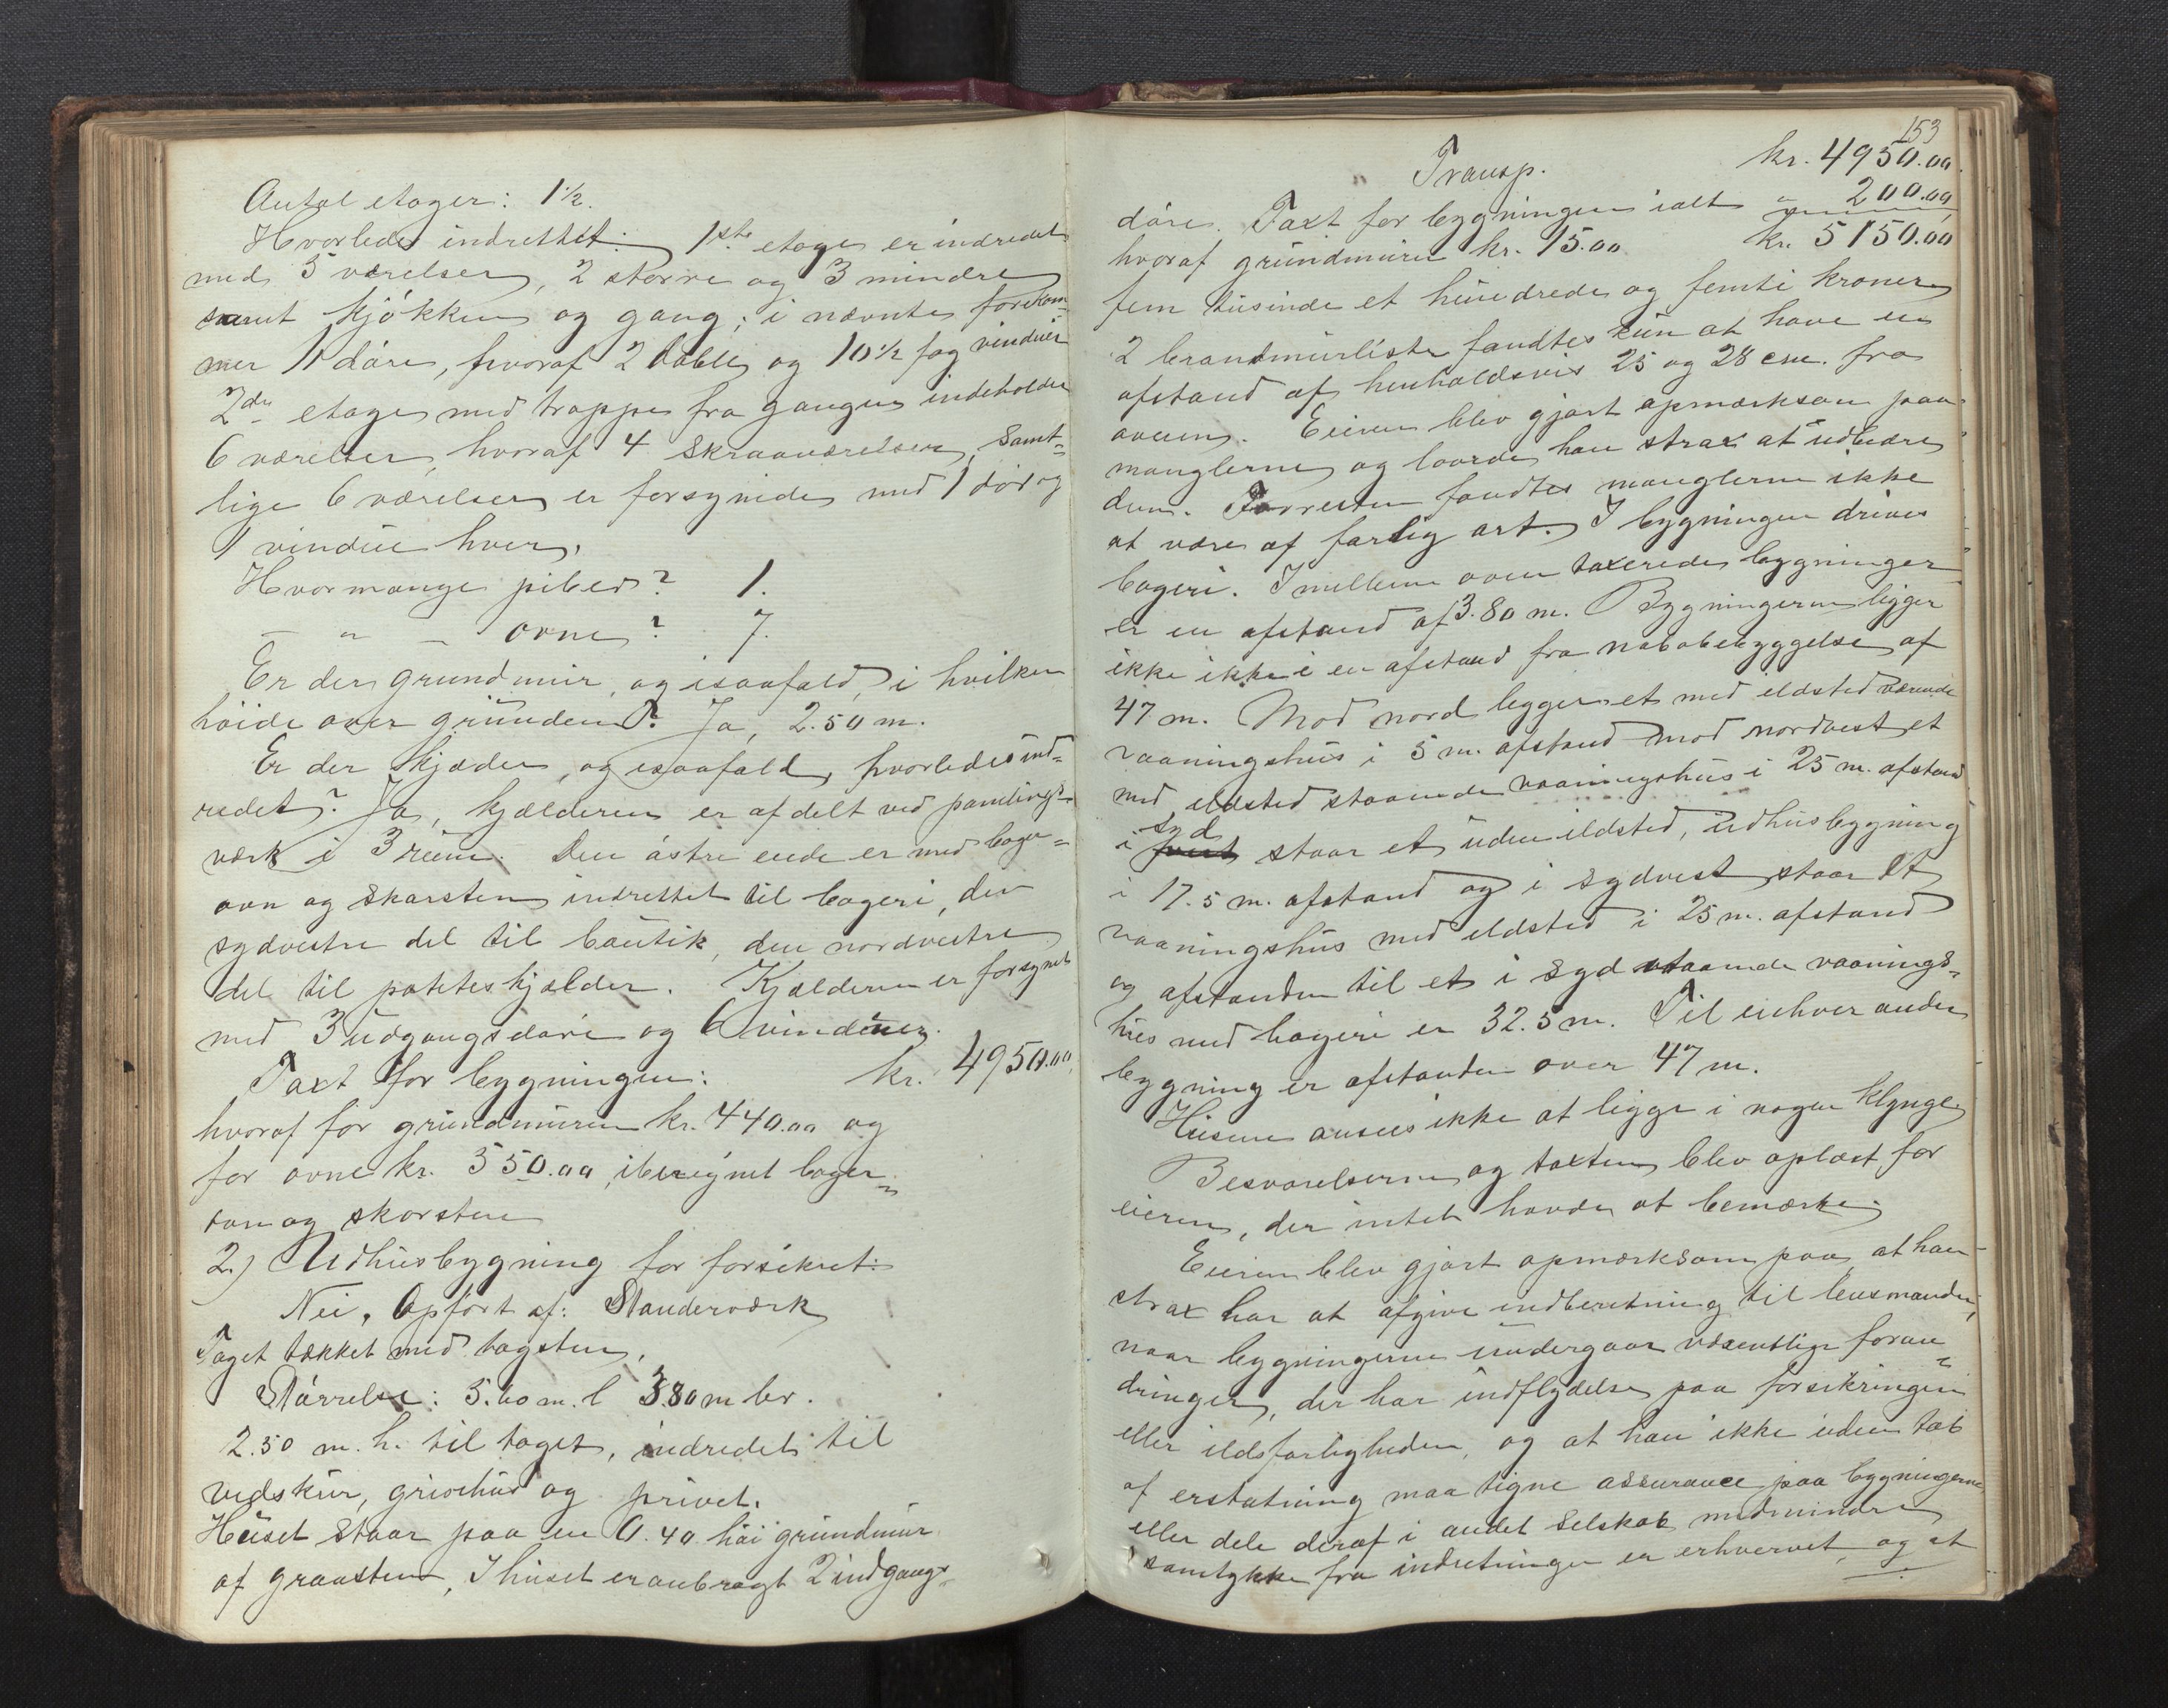 Antal etager: 1½.
Hvorledes indrettet: 1ste etage er indredet
med 5 værelser, 2 større og 3 mindre
samt kjøkken og gang; i nævnte forekom-
mer 11 døre, hvoraf 2 doble og 10½ fag vinduer
2den etage med trappe fra gangen indeholder
6 værelser, hvoraf 4 skraaværelser, samt-
lige 6 værelser er forsynede med 1 dør og
1 vindue hver.
Hvormange piber? 1.
— " — ovne? 7.
Er der grundmur, og isaafald, i hvilken
høide over grunden? Ja, 2.50 m.
Er der kjælder, og isaafald, hvorledes ind-
redet? Ja, kjælderen er afdelt ved panelings-
værk i 3 rum. Den østre ende er med bager-
ovn og skorsten indrettet til bageri, den
sydvestre del til boutik, den nordvestre
del til poteteskjælder. Kjælderen er forsynet
med 3 udgangsdøre og 6 vinduer.
Taxt for bygningen: kr. 4950.00
hvoraf for grundmuren kr. 440.00 og
for ovne kr. 550.00 iberegnet bager-
ovn og skorsten
2.) Udhusbygning før forsikret:
Nei, Opført af: Standerværk
Taget tækket med tagsten,
Størrelse: 5.60 m. l 3.80 m br.
2.50 m. h. til taget, indredet til
vedskur, grisehus og privet.
Huset staar paa en 0.40 høi grundmur
af graasten, I huset er anbragt 2 indgangs-
153
Transp. kr. 4950.00
døre. Taxt for bygningen ialt " 200.00
hvoraf grundmuren kr. 15.00 kr. 5150.00
fem tusinde et hundrede og femti kroner
2 brandmurliste fandtes kun at have en
afstand af henholdsvis 25 og 28 cm. fra
ovnen. Eieren blev gjort opmærksom paa
manglerne og lovede han strax at udbedre
dem. Forresten fandtes manglerne ikke
at være af farlig art. I bygningen drives
bageri. Imellem oven taxerede bygninger
er en afstand af 3.80 m. Bygningerne ligger
ikke ikke i en afstand fra nabobebyggelse af
47 m. Mod nord ligger et med ildsted værende
vaaningshus i 5 m. afstand mod nordvest et
med ildsted staaende vaaningshus i 25 m. afstand
i syd staar et uden ildsted, udhusbygning
i 17.5 m. afstand og i sydvest staar et
vaaningshus med ildsted i 25 m. afstand
og afstanden til et i syd staaende vaanings-
hus med bageri er 32.5 m. Til enhver anden
bygning er afstanden over 47 m.
Husene ansees ikke at ligge i nogen klynge
Besvarelserne og taxten blev oplæst for
eieren, der intet havde at bemærke
Eieren blev gjort opmærksom paa, at han
strax har at afgive indberetning til lensmanden,
naar bygningerne undergaar væsentlige foran-
dringer, der har indflydelse paa forsikringen
eller ildsfarligheden, og at han ikke uden tab
af erstatning maa tegne assurance paa bygningerne
eller dele deraf i andet selskab medmindre
samtykke fra indretningen er erhvervet, og at